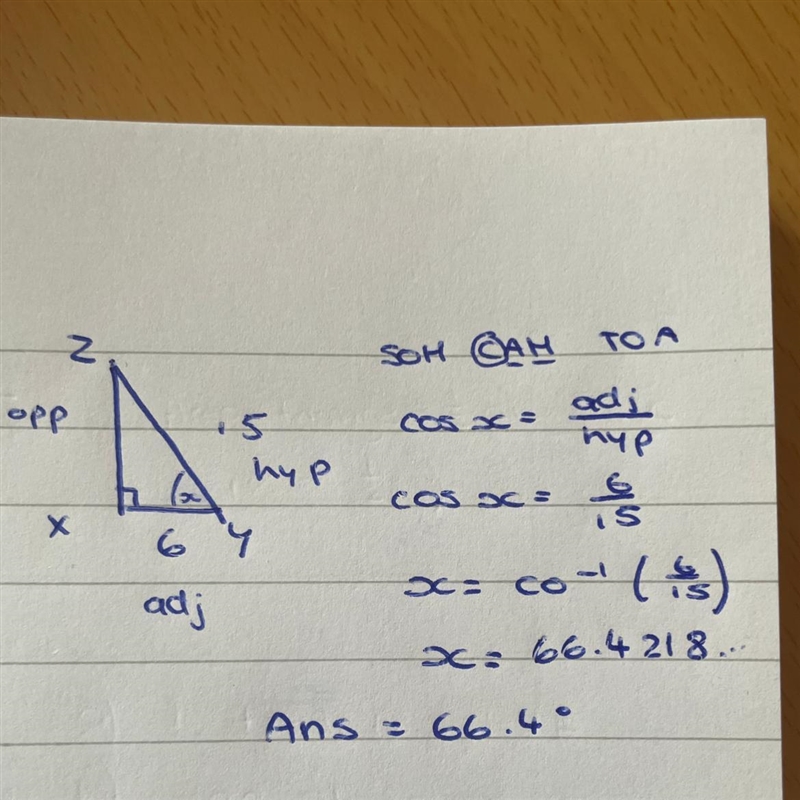 Z
opp
15
hyp
x
X
6
Y
adj
SOH CAH TOA
cos x = adj/hyp
cos x = 6/15
x = co⁻¹ (6/15)
x = 66.4218...
Ans = 66.4°